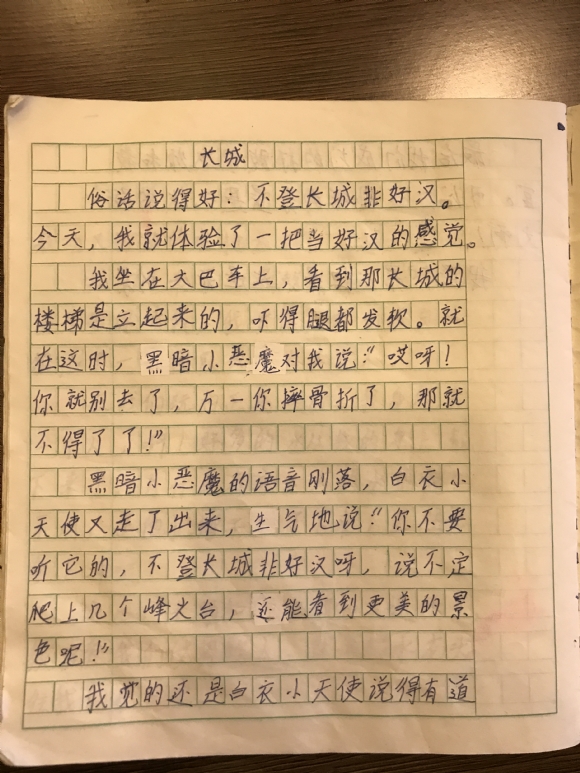 长城
俗话说得好：不登长城非好汉。
今天，我就体验了一把当好汉的感觉。
我坐在大巴车上，看到那长城的
楼梯是立起来的，吓得腿都发软。就
在这时，黑暗小恶魔对我说：“哎呀！
你就别去了，万一你摔骨折了，那就
不得了了！”
黑暗小恶魔的语音刚落，白衣小
天使又走了出来，生气地说：“你不要
听它的，不登长城非好汉呀，说不定
爬上几个峰火台，还能看到更美的景
色呢！”
我觉的还是白衣小天使说得有道